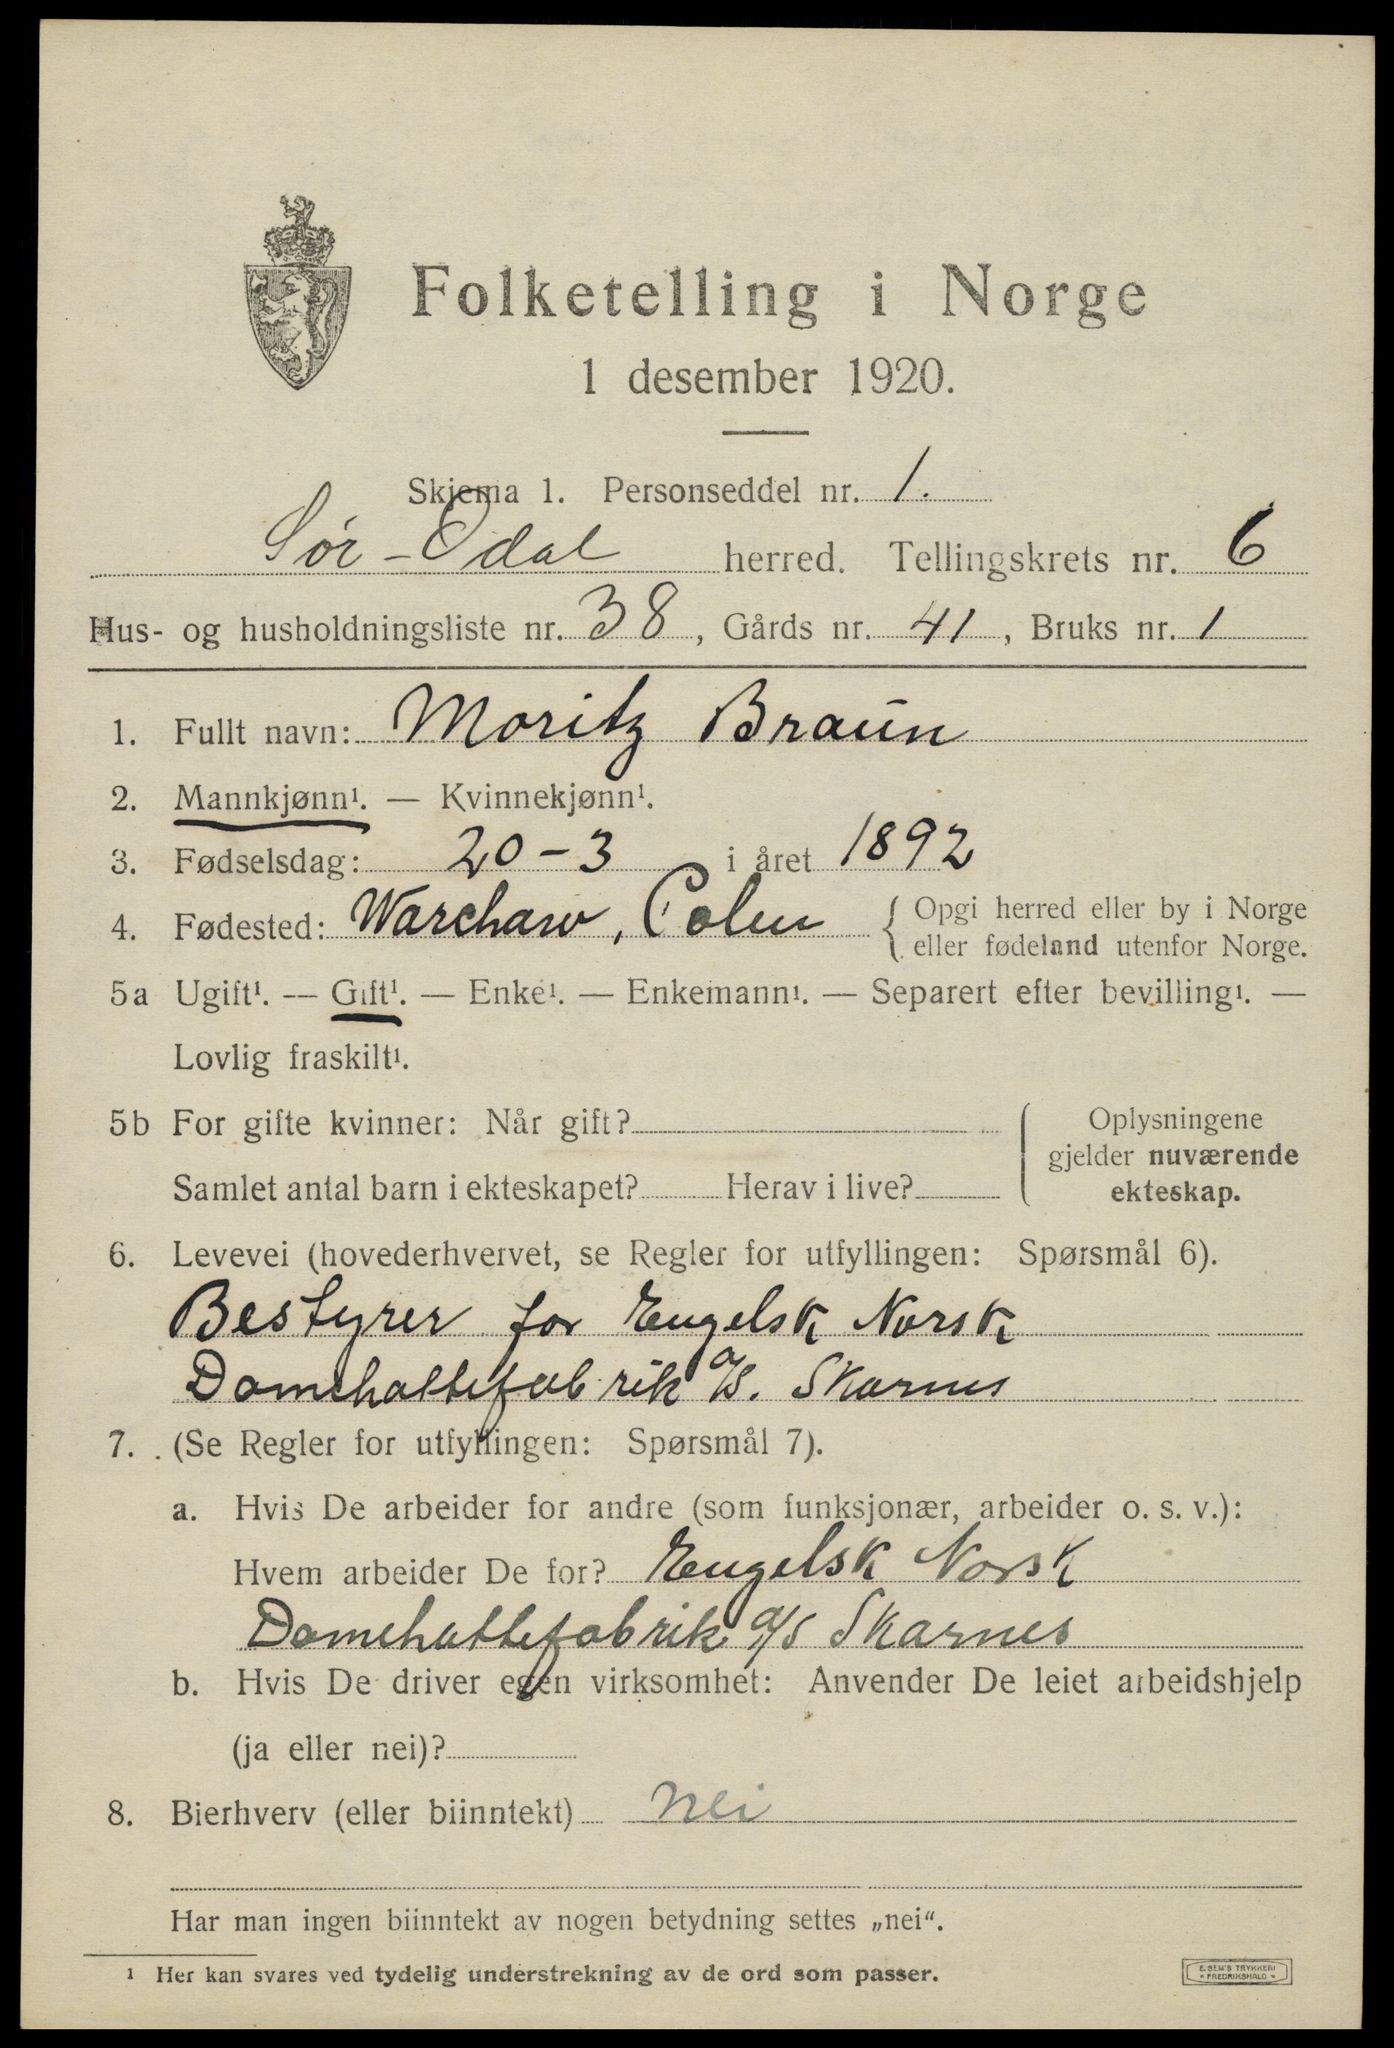 Folketelling i Norge
1 desember 1920.
Skjema 1. Personseddel nr. 1.
Sør-Odal herred. Tellingskrets nr. 6
Hus- og husholdningsliste nr. 38, Gårds nr. 41, Bruks nr. 1
1. Fullt navn: Moritz Braun
2. Mannkjønn¹. — Kvinnekjønn¹.
3. Fødselsdag: 20-3 i året 1892
4. Fødested: Warchaw, Polen { Opgi herred eller by i Norge
eller fødeland utenfor Norge.
5a Ugift¹. — Gift¹. — Enke¹. — Enkemann¹. — Separert efter bevilling¹. —
Lovlig fraskilt¹.
5b For gifte kvinner: Når gift? Oplysningene
gjelder nuværende
Samlet antal barn i ekteskapet? Herav i live? ekteskap.
6. Levevei (hovederhvervet, se Regler for utfyllingen: Spørsmål 6).
Bestyrer for Engelsk Norsk
Damehattefabrik a/s. Skarnes
7. (Se Regler for utfyllingen: Spørsmål 7).
a. Hvis De arbeider for andre (som funksjonær, arbeider o. s. v.):
Hvem arbeider De for? Engelsk Norsk
Damehattefabrik a/s Skarnes
b. Hvis De driver egen virksomhet: Anvender De leiet arbeidshjelp
(ja eller nei)?
8. Bierhverv (eller biinntekt) Nei
Har man ingen biinntekt av nogen betydning settes „nei“.
¹ Her kan svares ved tydelig understrekning av de ord som passer.
E. SEM'S TRYKKERI
FREDRIKSHALD